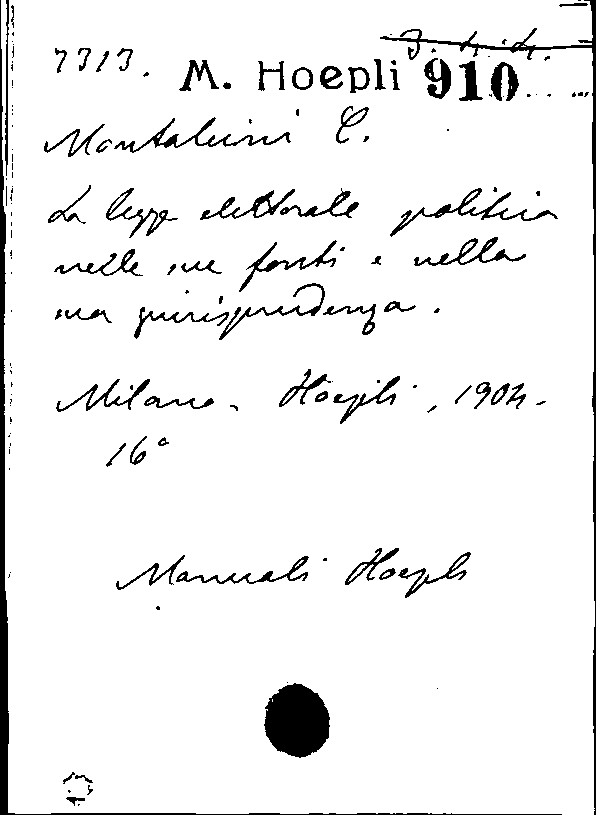 7313. 3. 4. 4.
M. Hoepli 910
Montalcini C.
La legge elettorale politica
nelle sue fonti e nella
sua giurisprudenza.
Milano - Hoepli, 1904.
16°
Manuali Hoepli